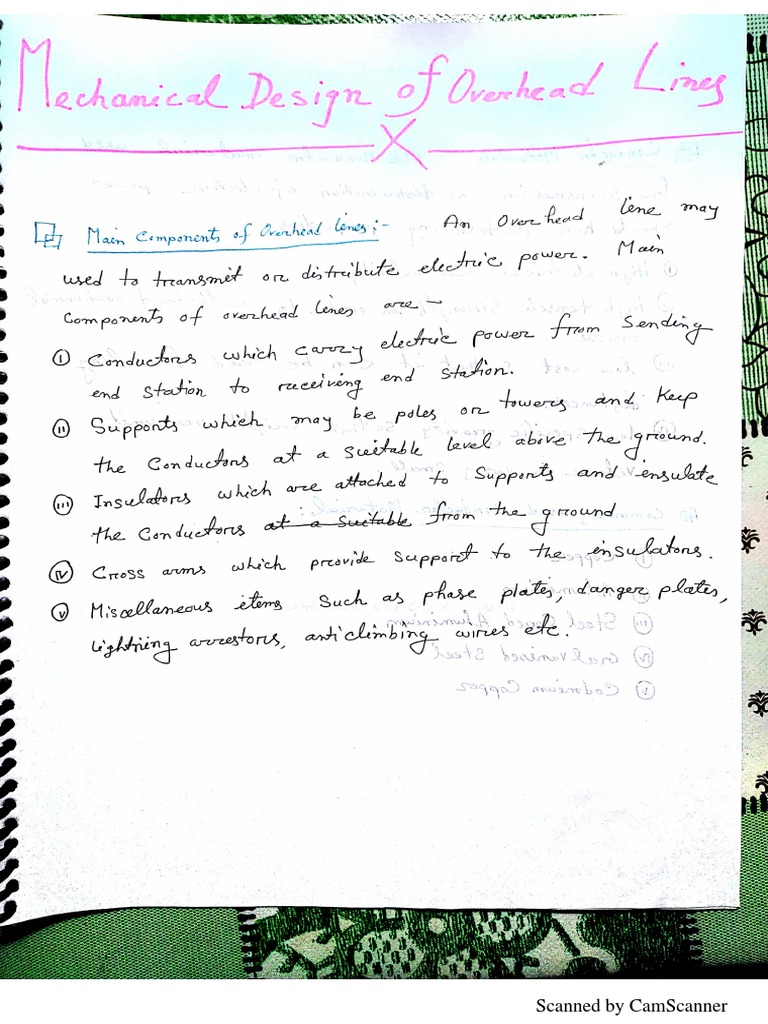 Mechanical Design of Overhead Lines
X
Main Components of Overhead lines:- An Overhead line may
used to transmit or distribute electric power. Main
Components of overhead lines are -
(i) Conductors which carry electric power from Sending
end Station to receiving end Station.
(ii) Supports which may be poles or towers and keep
the Conductors at a suitable level above the ground.
(iii) Insulators which are attached to Supports and insulate
the Conductors at a suitable from the ground
(iv) Cross arms which provide support to the insulators.
(v) Miscellaneous items Such as phase plates, danger plates,
lightning arrestors, anticlimbing wires etc.
Scanned by CamScanner